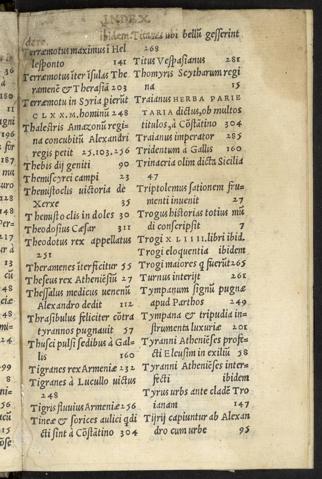 INDEX.
ibidem Titanes ubi bellū gesserint
Terræmotus maximus ī Hel
lesponto 141
Terræmotus īter īsulas The
ramenē & Therasiā 203
Terræmotu in Syria pierūt
CLXXM. hominū 248
Thalestris Amazonū regi
na concubitū Alexandri
regis petit 25.103.256
Thebis dij geniti 90
Themiscyrei campi 23
Themistoclis uictoria de
Xerxe 35
Themistoclis in doles 30
Theodosius Cæsar 311
Theodotus rex appellatus
251
Theramenes īterficitur 55
Theseus rex Atheniēsiū 27
Thessalus medicus uenenū
Alexandro dedit 112
Thrasibulus feliciter cōtra
tyrannos pugnauit 57
Thusci pulsi sedibus à Gal-
lis 160
Tigranes rex Armeniæ 232
Tigranes à Lucullo uictus
248
Tigris fluuius Armeniæ 256
Tineæ & sorices aulici qdi
cti sint à Cōstātino 304
268
Titus Vespasianus 281
Thomyris Scytharum regi
na 15
Traianus HERBA PARIE
TARIA dictus, ob multos
titulos, à Cōstātino 304
Traianus imperator 285
Tridentum à Gallis 160
Trinacria olim dicta Sicilia
47
Triptolemus sationem fru-
menti inuenit 27
Trogus historias totius mū
di conscripsit 7
Trogi XLIIII. libri ibid.
Trogi eloquentia ibidem
Trogi maiores q fuerūt 265
Turnus interijt 261
Tympanum signū pugnæ
apud Parthos 249
Tympana & tripudia in-
strumenta luxuriæ 201
Tyranni Atheniēses profe-
cti Eleusim in exiliū 58
Tyranni Atheniēses inter-
fecti ibidem
Tyrus urbs ante cladē Tro
ianam 147
Tirij capiuntur ab Alexan
dro cum urbe 95